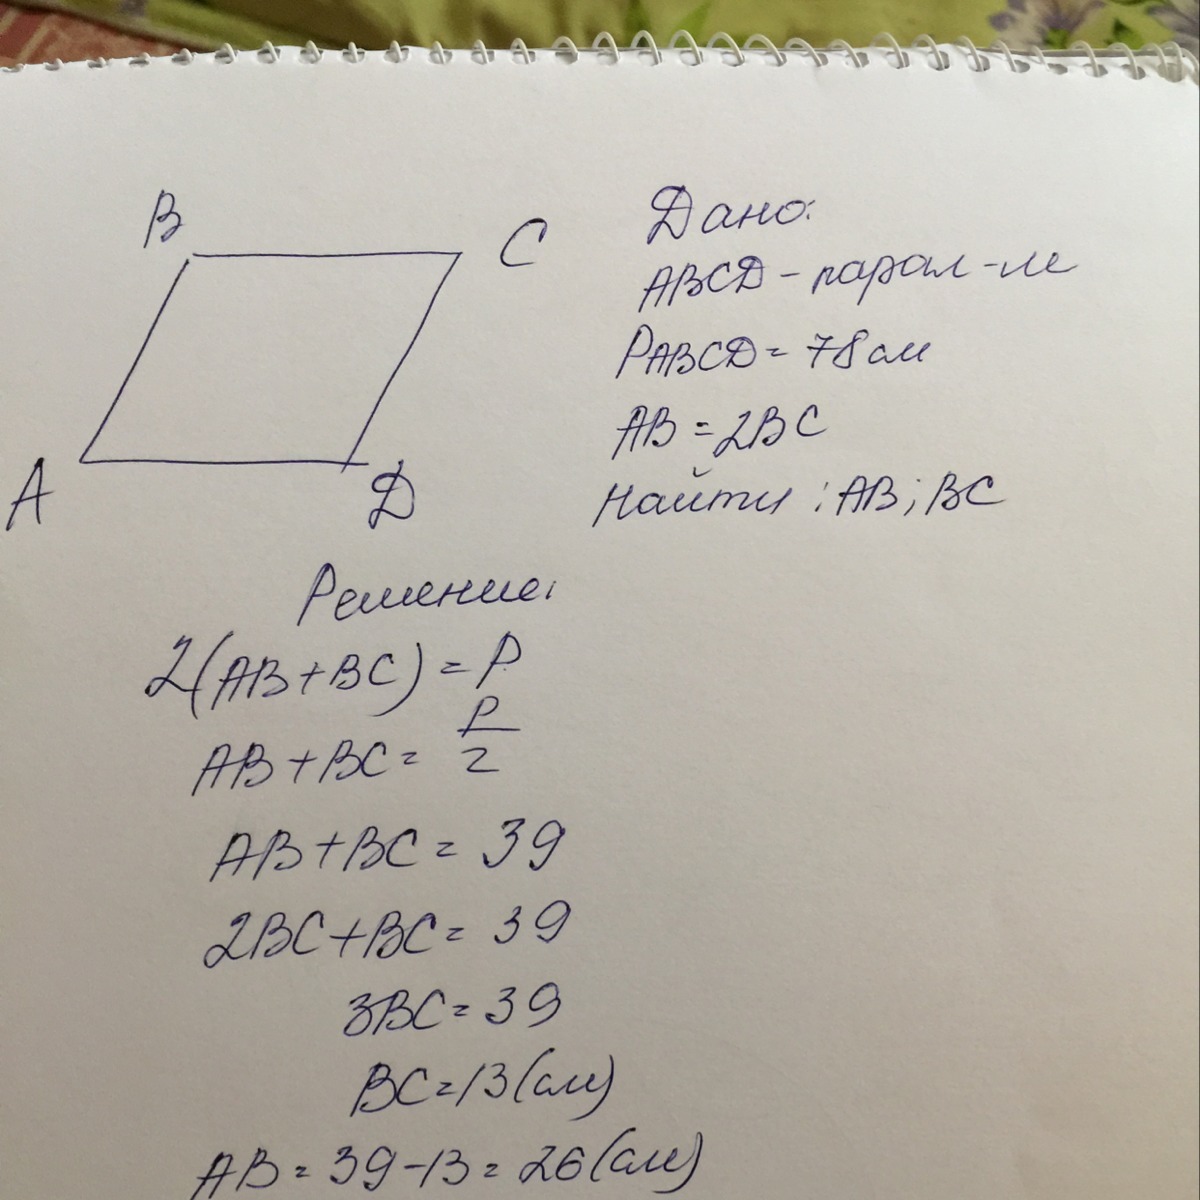 B
C
A
D
Дано:
ABCD - парал-м
PABCD = 78 см
AB = 2BC
Найти : AB; BC
Решение:
2(AB+BC) = P
AB+BC = P/2
AB+BC = 39
2BC+BC = 39
3BC = 39
BC = 13 (см)
AB = 39-13 = 26 (см)